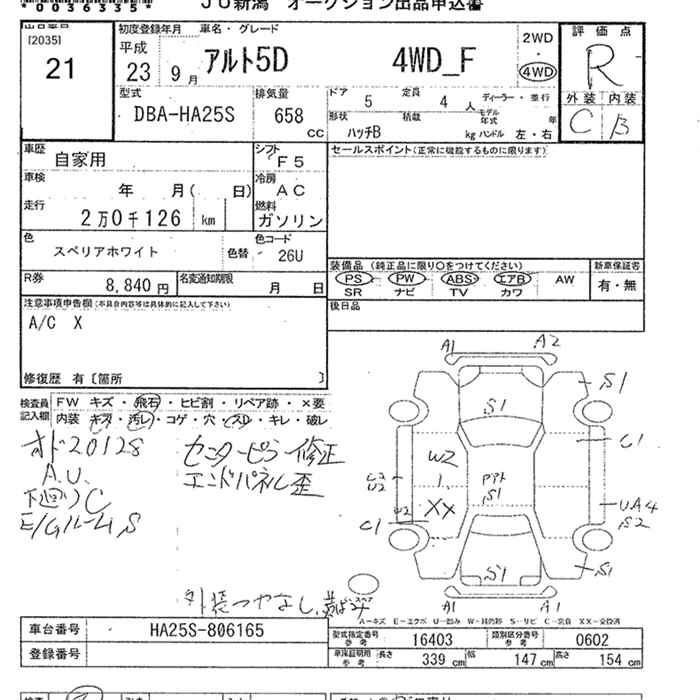 * 0036335 *
JU新潟 オークション出品申込書
[2035]
21
初度登録年月
平成
23 9月
車名・グレード
アルト5D 4WD_F
2WD
・
4WD
評価点
R
外装 内装
C B
型式
DBA-HA25S
排気量
658
CC
ドア 5 定員 4 人 ディーラー・並行
形状 ハッチB 積載 kg モデル年式 年
ハンドル 左・右
車歴
自家用
シフト
F5
セールスポイント(正常に機能するものに限ります)
車検
年 月( 日)
冷房
AC
走行
2万0千126 km
燃料
ガソリン
色
スペリアホワイト
色替
色コード
26U
装備品 (純正品に限り〇をつけてください)
PS・PW・ABS・エアB・ AW
SR ナビ TV カワ
新車保証書
有・無
R券
8,840 円
名変通知期限
月 日
後日品
注意事項申告欄(不具合内容等は具体的に記入して下さい)
A/C X
修復歴 有〔箇所 〕
検査員記入欄
FW キズ・飛石・ヒビ割・リペア跡・×要
内装 キズ・汚レ・コゲ・穴・スレ・キレ・破レ
オド20128
A.U.
下廻りC
E/GルームS
センターピラー修正
エンドパネル歪
外装つやなし,
A1 A2
S1
S1
W2
C1
1.
S1
U2
W2
XX
UA4
S2
C1
S1
S1
A1 A1
A=キズ E=エクボ U=凹み W=波 S=サビ C=腐食 XX=交換済
車台番号
HA25S-806165
登録番号
型式指定番号
参考
16403
類別区分番号
参考
0602
車庫証明用
参考
長さ 339 cm 幅 147 cm 高さ 154 cm